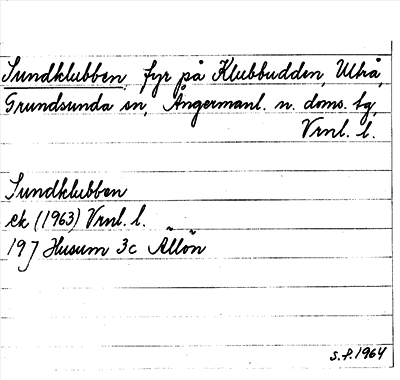 Sundklubben, fyr på Klubbudden, Ulvå,
Grundsunda sn, Ångermanl. n. doms. tg,
Vrnl. l.
Sundklubben
ek (1963) Vrnl. l.
19J Husum 3c Ällön
s.f. 1964